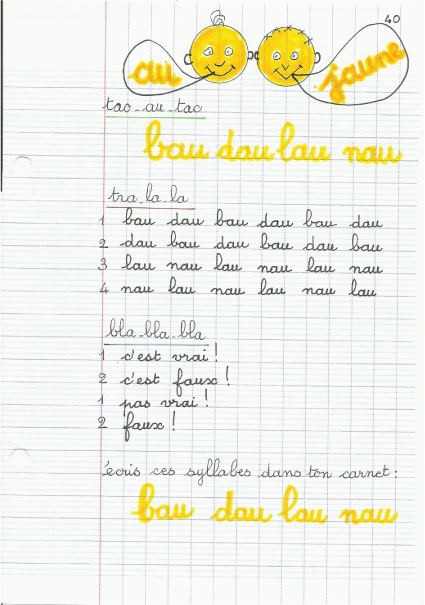 40
au jaune
tac_au_tac
bau dau lau nau
tra_la_la
1 bau dau bau dau bau dau
2 dau bau dau bau dau bau
3 lau nau lau nau lau nau
4 nau lau nau lau nau lau
bla_bla_bla
1 c'est vrai !
2 c'est faux !
1 pas vrai !
2 faux !
écris ces syllabes dans ton carnet :
bau dau lau nau